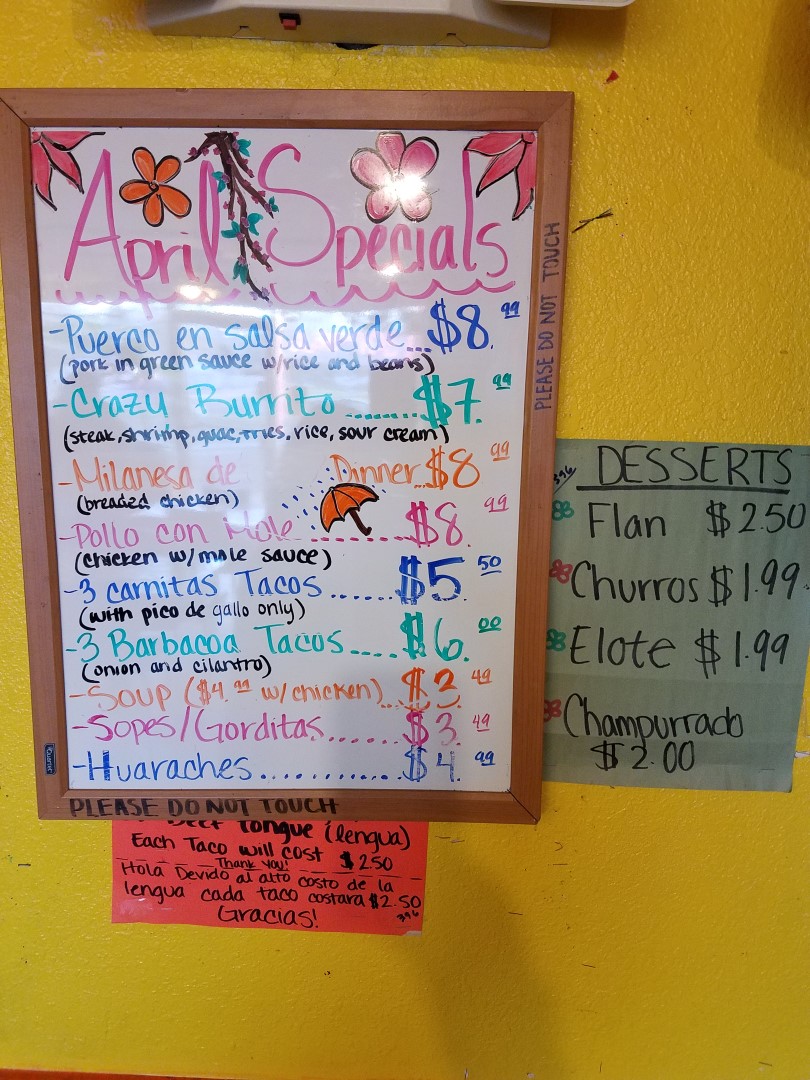 April Specials
-Puerco en salsa verde...$8.99
(pork in green sauce w/rice and beans)
-Crazy Burrito ........$7.99
(steak, shrimp, guac, fries, rice, sour cream)
-Milanesa de Dinner..$8.99
(breaded chicken)
-Pollo con Mole ..........$8.99
(chicken w/mole sauce)
-3 carnitas Tacos ......$5.50
(with pico de gallo only)
-3 Barbacoa Tacos.....$6.00
(onion and cilantro)
-Soup ($4.99 w/chicken)....$2.49
-Sopes/Gorditas.......$3.49
-Huaraches............$4.99
PLEASE DO NOT TOUCH
PLEASE DO NOT TOUCH
Quartet
396
DESSERTS
Flan $2.50
Churros $1.99
Elote $1.99
Champurrado
$2.00
Beef Tongue (lengua)
Each Taco will cost $2.50
Thank You!
Hola Devido al alto costo de la
lengua cada taco costara $2.50
Gracias!
396